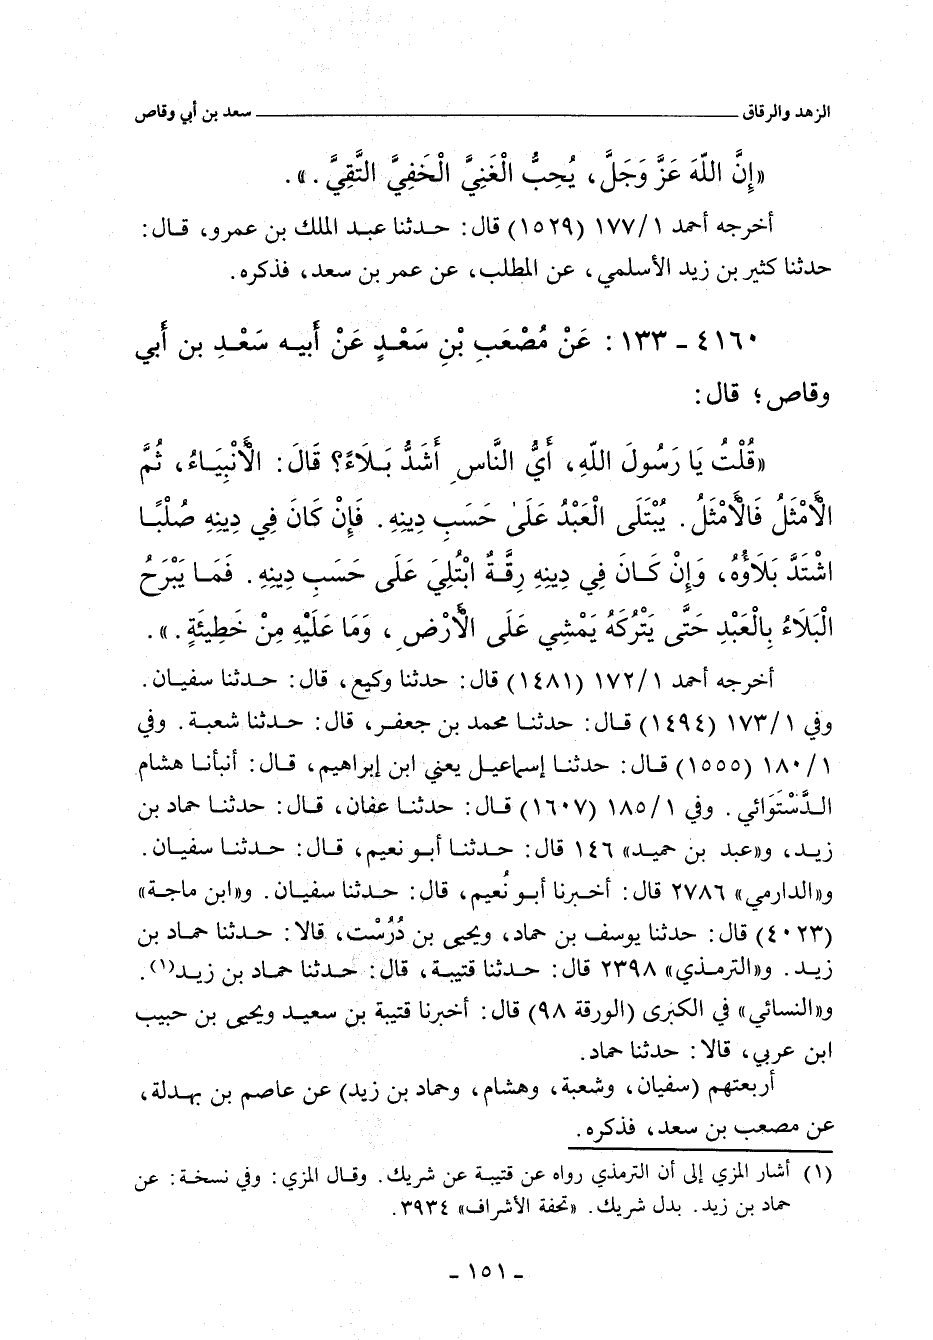 الزهد والرقاق ـــــــــــــــــــــــــــــــ سعد بن أبي وقاص
«إِنَّ اللّهَ عَزَّ وَجَلَّ، يُحِبُّ الْغَنِيَّ الْخَفِيَّ التَّقِيَّ.».
أخرجه أحمد ١٧٧/١ (١٥٢٩) قال: حدثنا عبد الملك بن عمرو، قال:
حدثنا كثير بن زيد الأسلمي، عن المطلب، عن عمر بن سعد، فذكره.
٤١٦٠ - ١٣٣: عَنْ مُصْعَبِ بْنِ سَعْدٍ عَنْ أَبيه سَعْدِ بن أَبي
وقاص؛ قال:
«قُلْتُ يَا رَسُولَ اللّهِ، أَيُّ النَّاسِ أَشَدُّ بَلَاءً؟ قَالَ: الْأَنْبِيَاءُ، ثُمَّ
الْأَمْثَلُ فَالْأَمْثَلُ. يُبْتَلَى الْعَبْدُ عَلَىٰ حَسَبِ دِينِهِ. فَإِنْ كَانَ فِي دِينِهِ صُلْبًا
اشْتَدَّ بَلَاؤُهُ، وَإِنْ كَانَ فِي دِينِهِ رِقَّةٌ ابْتُلِيَ عَلَى حَسَبِ دِينِهِ. فَمَا يَبْرَحُ
الْبَلَاءُ بِالْعَبْدِ حَتَّى يَتْرُكَهُ يَمْشِي عَلَى الْأَرْضِ، وَمَا عَلَيْهِ مِنْ خَطِيئَةٍ.».
أخرجه أحمد ١٧٢/١ (١٤٨١) قال: حدثنا وكيع، قال: حدثنا سفيان.
وفي ١٧٣/١ (١٤٩٤) قال: حدثنا محمد بن جعفر، قال: حدثنا شعبة. وفي
١٨٠/١ (١٥٥٥) قال: حدثنا إسماعيل يعني ابن إبراهيم، قال: أنبأنا هشام
الدَّسْتَوَائي. وفي ١٨٥/١ (١٦٠٧) قال: حدثنا عفان، قال: حدثنا حماد بن
زيد، و«عبد بن حميد» ١٤٦ قال: حدثنا أبو نعيم، قال: حدثنا سفيان.
و«الدارمي» ٢٧٨٦ قال: أخبرنا أبو نُعيم، قال: حدثنا سفيان. و«ابن ماجة»
(٤٠٢٣) قال: حدثنا يوسف بن حماد، ويحيى بن دُرُسْت، قالا: حدثنا حماد بن
زيد. و«الترمذي» ٢٣٩٨ قال: حدثنا قتيبة، قال: حدثنا حماد بن زيد(١).
و«النسائي» في الكبرى (الورقة ٩٨) قال: أخبرنا قتيبة بن سعيد ويحيى بن حبيب
ابن عربي، قالا: حدثنا حماد.
أربعتهم (سفيان، وشعبة، وهشام، وحماد بن زيد) عن عاصم بن بهدلة،
عن مصعب بن سعد، فذكره.
(١) أشار المزي إلى أن الترمذي رواه عن قتيبة عن شريك. وقال المزي: وفي نسخة: عن
حماد بن زيد. بدل شريك. «تحفة الأشراف» ٣٩٣٤.
- ١٥١ -